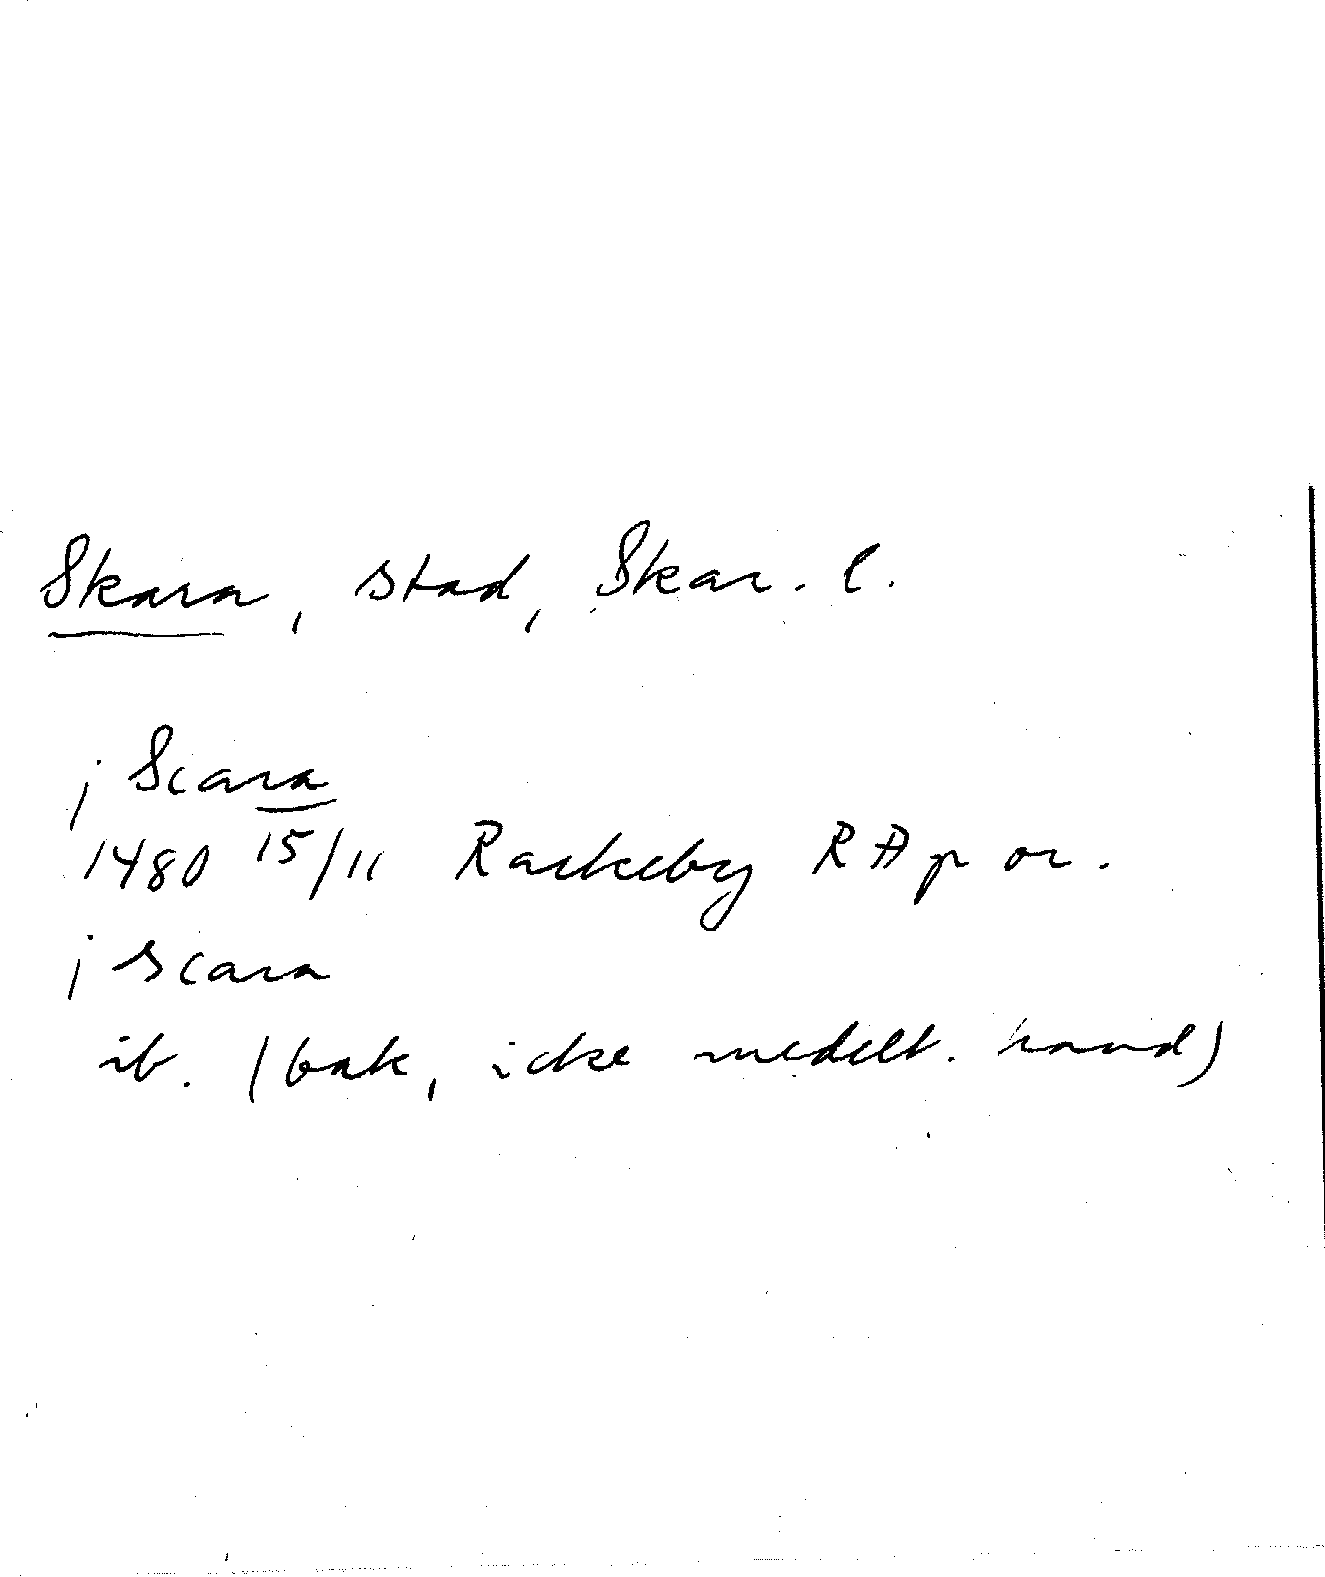 Skara, stad, Skar. l.
j Scara
1480 15/11 Rackeby RAp or.
j scara
ib. (bak, icke medelt. hand)